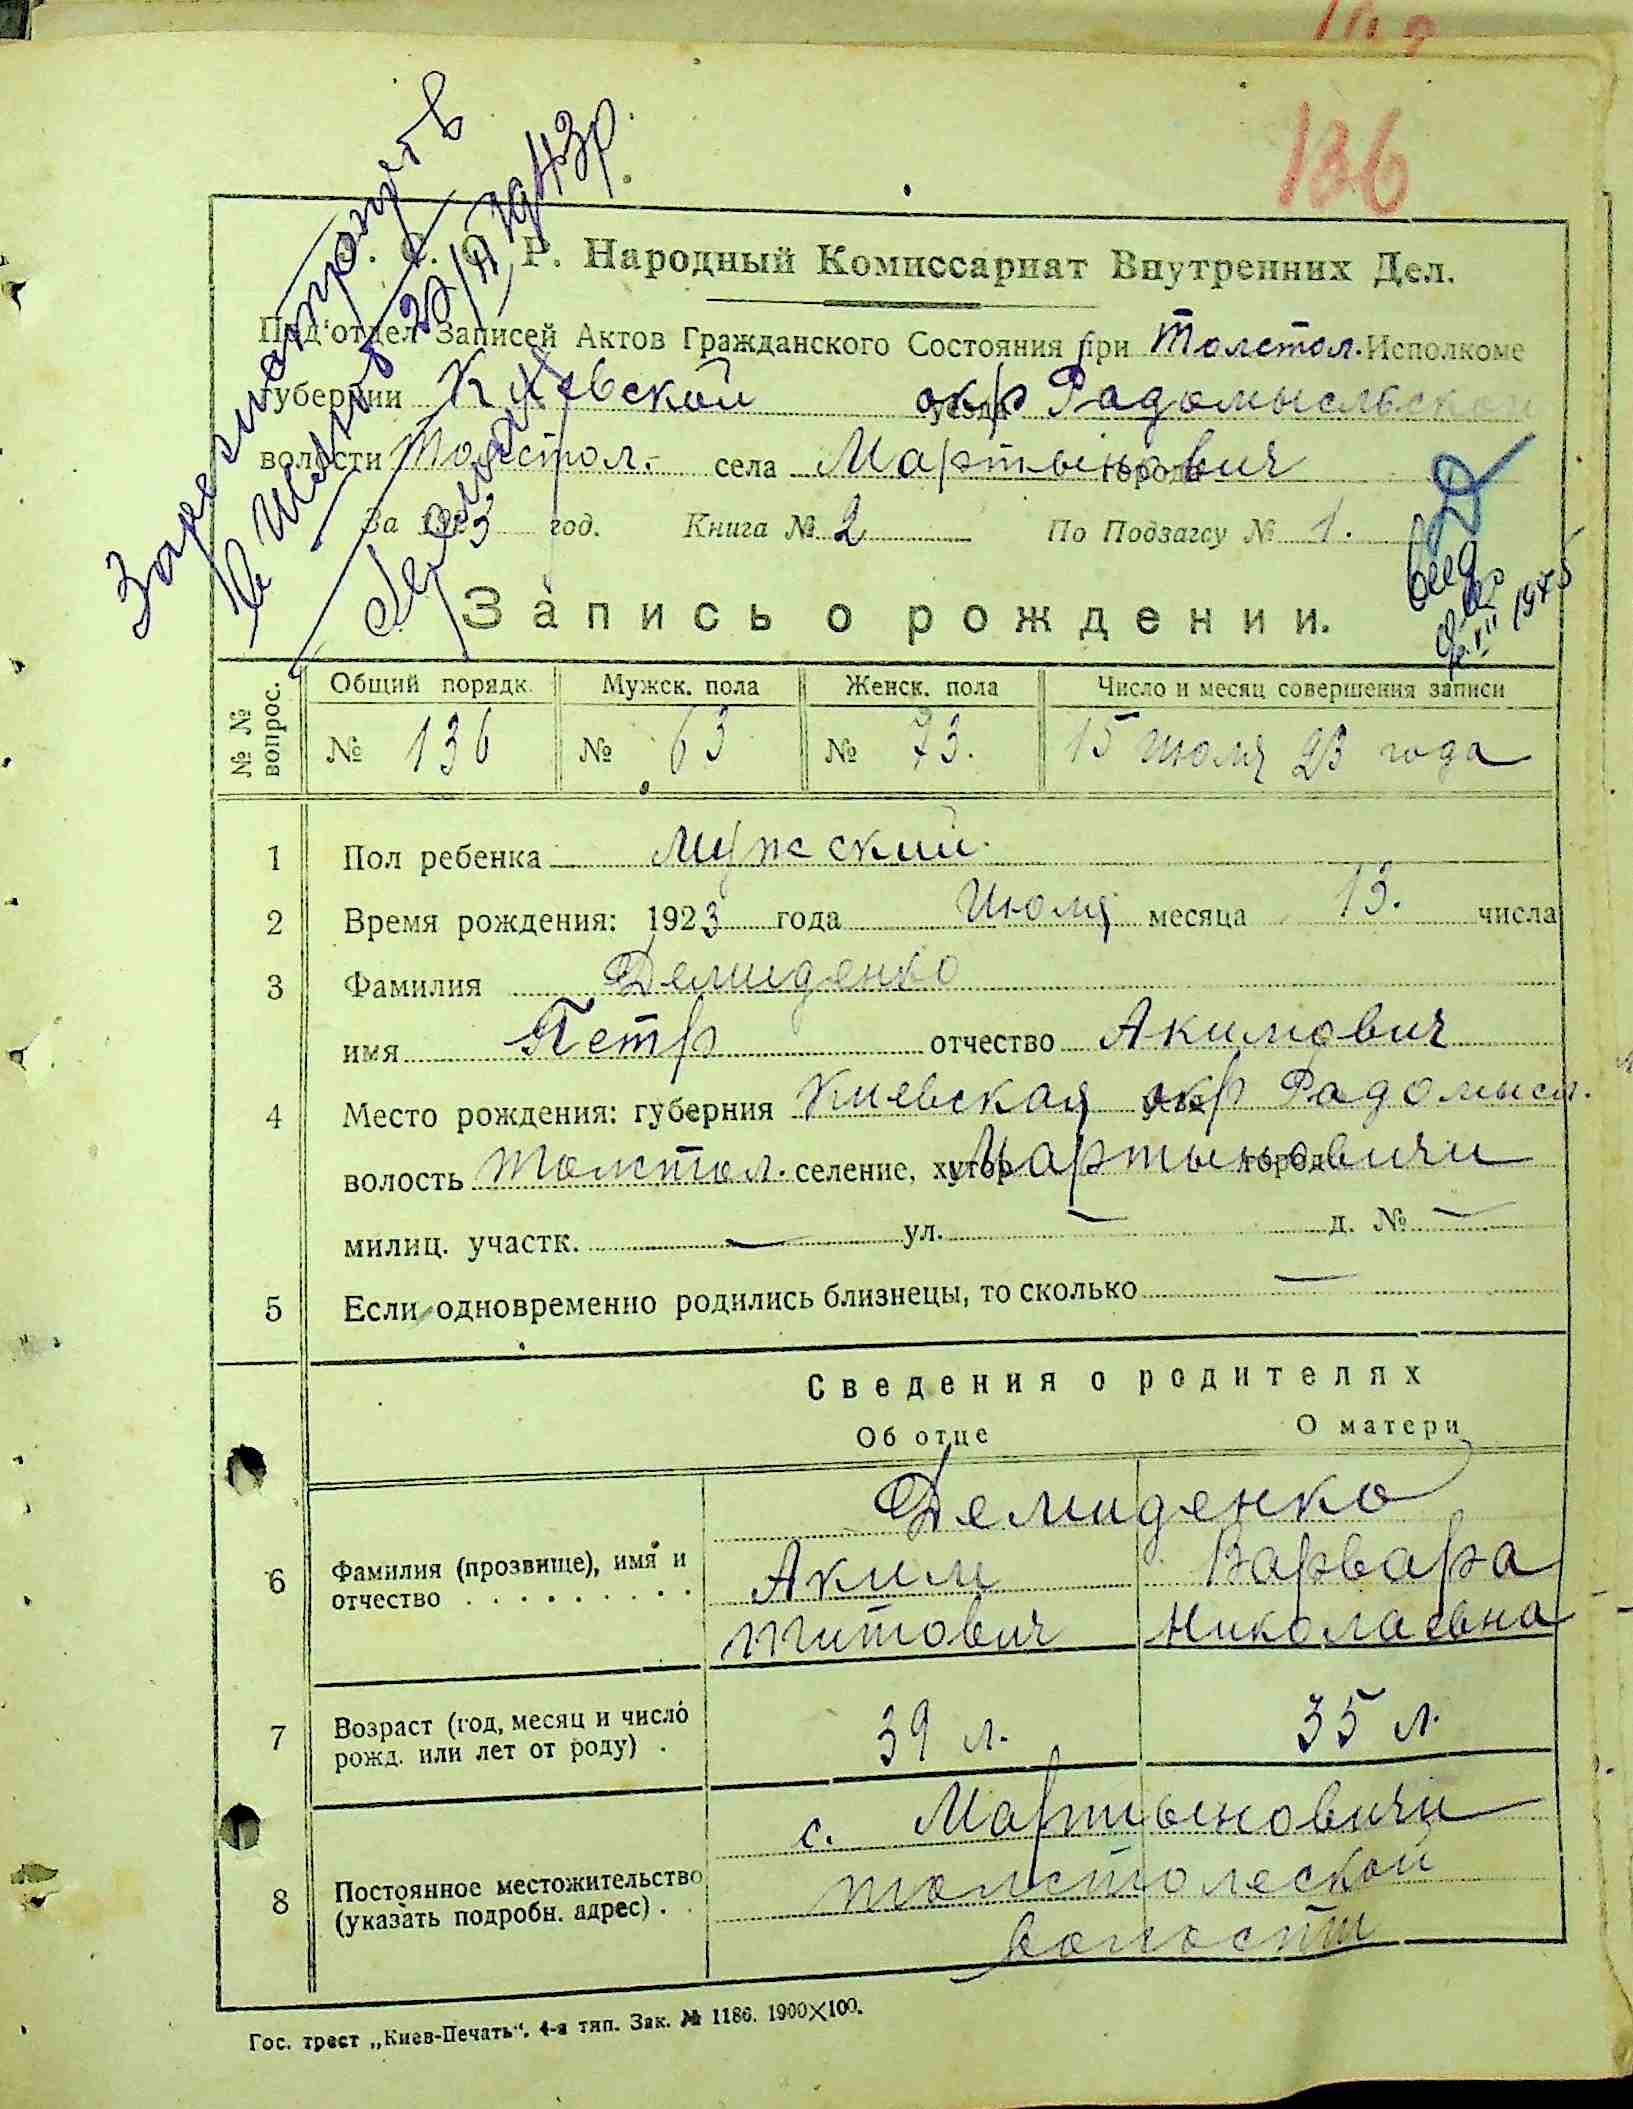 136
Р. Народный Комиссариат Внутренних Дел.
Под'отдел Записей Актов Гражданского Состояния при Толстол. Исполкоме
губернии Киевской окр Радомысльской
волости Толстол. села Мартынович
За 1923 год. Книга № 2 По Подзагсу № 1.
Запись о рождении.
№ № вопрос.
Общий порядк. Мужск. пола Женск. пола Число и месяц совершения записи
№ 136 № 63 № 73. 15 июля 23 года
1 Пол ребенка Мужский.
2 Время рождения: 1923 года Июля месяца 13. числа
3 Фамилия Демиденко
имя Петр отчество Акимович
4 Место рождения: губерния Киевская окр Радомысл.
волость Толстол. селение, хутор Мартыновичи город
милиц. участк. — ул. — д. № —
5 Если одновременно родились близнецы, то сколько —
Сведения о родителях
Об отце О матери
Демиденко
6 Фамилия (прозвище), имя и отчество Аким Варвара
Титович Николаевна
7 Возраст (год, месяц и число рожд. или лет от роду) . 39 л. 35 л.
с. Мартыновичи
8 Постоянное местожительство (указать подробн. адрес) . . Толстолеской
волости
Гос. трест „Киев-Печать“. 4-я тип. Зак. № 1186. 1900×100.